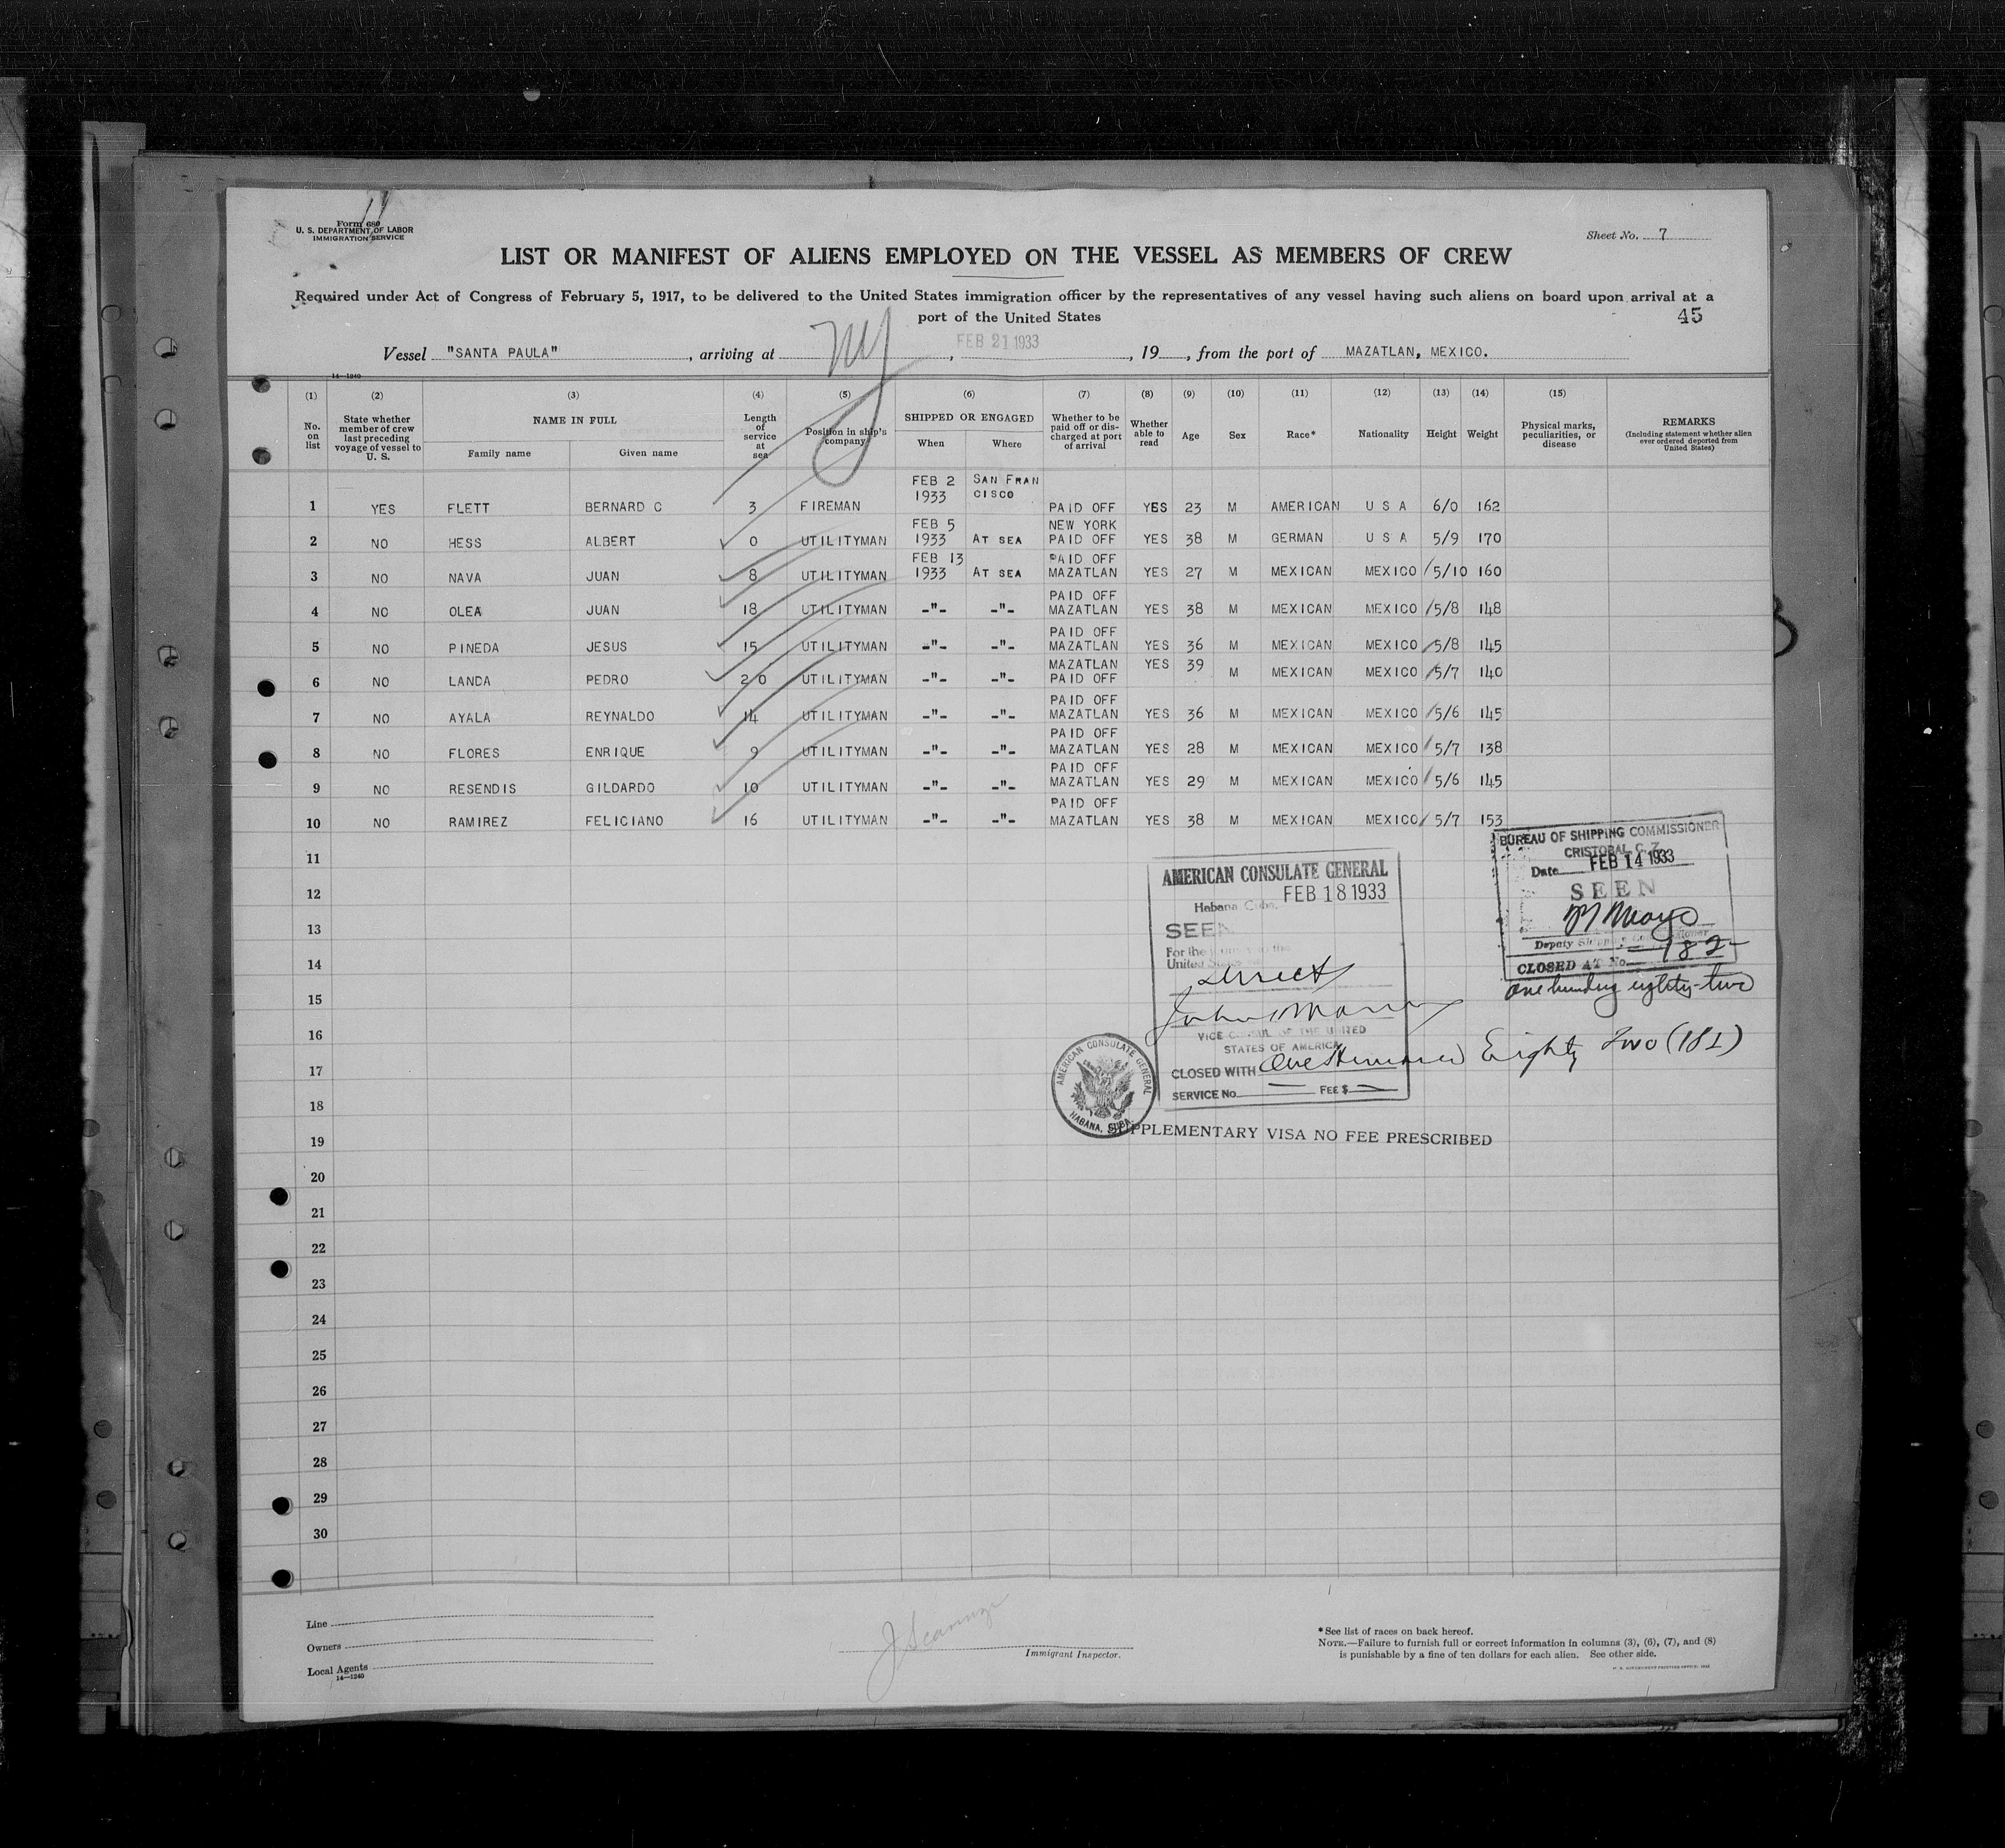 Form 680
U. S. DEPARTMENT OF LABOR
IMMIGRATION SERVICE
Sheet No. 7
LIST OR MANIFEST OF ALIENS EMPLOYED ON THE VESSEL AS MEMBERS OF CREW
Required under Act of Congress of February 5, 1917, to be delivered to the United States immigration officer by the representatives of any vessel having such aliens on board upon arrival at a
port of the United States
45
Vessel "SANTA PAULA", arriving at NY, FEB 21 1933, 19, from the port of MAZATLAN, MEXICO.
14—1240
(1) (2) (3) (4) (5) (6) (7) (8) (9) (10) (11) (12) (13) (14) (15)
No. on list
State whether member of crew last preceding voyage of vessel to U. S.
NAME IN FULL
Family name Given name
Length of service at sea
Position in ship's company
SHIPPED OR ENGAGED
When Where
Whether to be paid off or discharged at port of arrival
Whether able to read
Age
Sex
Race*
Nationality
Height
Weight
Physical marks, peculiarities, or disease
REMARKS
(Including statement whether alien ever ordered deported from United States)
1 YES FLETT BERNARD C 3 FIREMAN FEB 2 1933 SAN FRAN CISCO PAID OFF YES 23 M AMERICAN U S A 6/0 162
2 NO HESS ALBERT 0 UTILITYMAN FEB 5 1933 AT SEA NEW YORK PAID OFF YES 38 M GERMAN U S A 5/9 170
3 NO NAVA JUAN 8 UTILITYMAN FEB 13 1933 AT SEA PAID OFF MAZATLAN YES 27 M MEXICAN MEXICO 5/10 160
4 NO OLEA JUAN 18 UTILITYMAN -"- -"- PAID OFF MAZATLAN YES 38 M MEXICAN MEXICO 5/8 148
5 NO PINEDA JESUS 15 UTILITYMAN -"- -"- PAID OFF MAZATLAN YES 36 M MEXICAN MEXICO 5/8 145
6 NO LANDA PEDRO 20 UTILITYMAN -"- -"- MAZATLAN PAID OFF YES 39 M MEXICAN MEXICO 5/7 140
7 NO AYALA REYNALDO 14 UTILITYMAN -"- -"- PAID OFF MAZATLAN YES 36 M MEXICAN MEXICO 5/6 145
8 NO FLORES ENRIQUE 9 UTILITYMAN -"- -"- PAID OFF MAZATLAN YES 28 M MEXICAN MEXICO 5/7 138
9 NO RESENDIS GILDARDO 10 UTILITYMAN -"- -"- PAID OFF MAZATLAN YES 29 M MEXICAN MEXICO 5/6 145
10 NO RAMIREZ FELICIANO 16 UTILITYMAN -"- -"- PAID OFF MAZATLAN YES 38 M MEXICAN MEXICO 5/7 153
11
12
13
14
15
16
17
18
19
20
21
22
23
24
25
26
27
28
29
30
BUREAU OF SHIPPING COMMISSIONER
CRISTOBAL, C. Z.
Date FEB 14 1933
SEEN
Deputy Shipping Commissioner
CLOSED AT No. 182
one hundred eighty-two
AMERICAN CONSULATE GENERAL
Habana, Cuba, FEB 18 1933
SEEN
For the journey to the
United States
direct
VICE CONSUL OF THE UNITED
STATES OF AMERICA
CLOSED WITH One Hundred Eighty Two (182)
SERVICE No. FEE $
AMERICAN CONSULATE GENERAL
HABANA, CUBA.
SUPPLEMENTARY VISA NO FEE PRESCRIBED
Line
Owners
Local Agents
14—1240
Immigrant Inspector.
*See list of races on back hereof.
NOTE.—Failure to furnish full or correct information in columns (3), (6), (7), and (8)
is punishable by a fine of ten dollars for each alien. See other side.